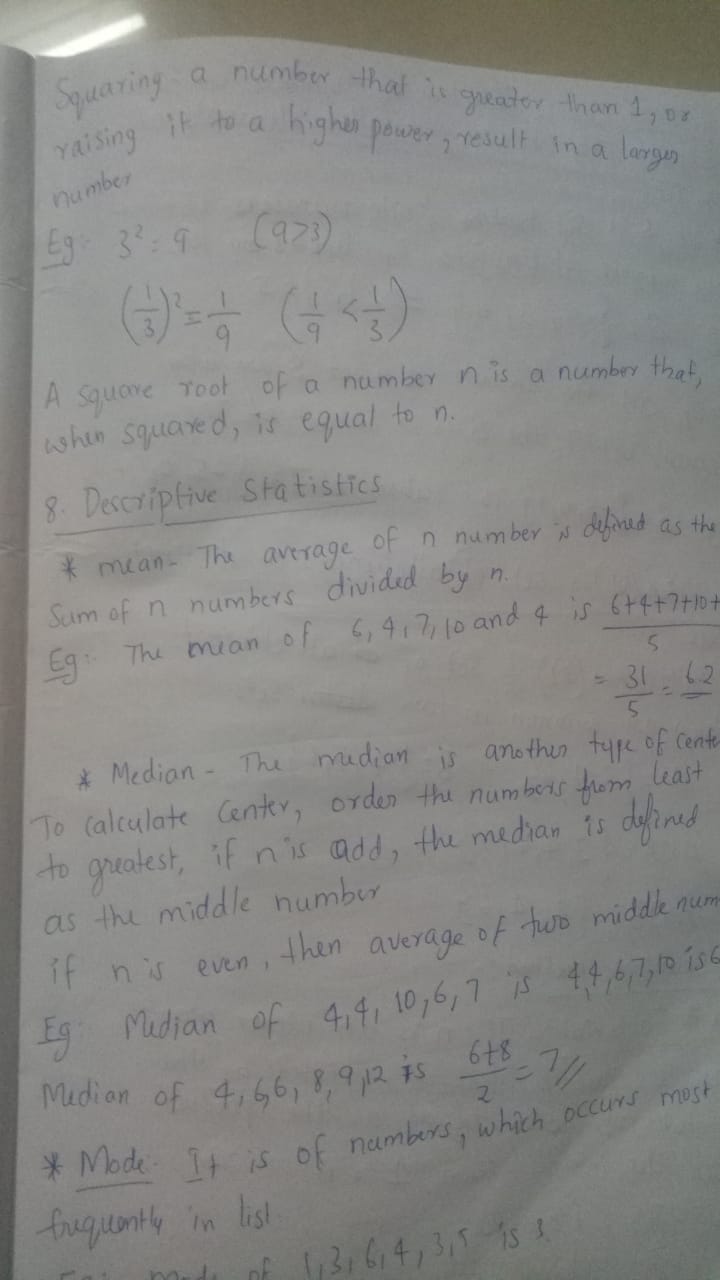 Squaring a number that is greater than 1, or
raising it to a higher power, result in a larger
number
Eg: 3² = 9 (9>3)
(1/3)² = 1/9 (1/9 < 1/3)
A square root of a number n is a number that,
when squared, is equal to n.
8. Descriptive Statistics
* mean - The average of n number is defined as the
Sum of n numbers divided by n.
Eg: The mean of 6, 4, 7, 10 and 4 is 6+4+7+10+/5
= 31/5 = 6.2
* Median - The median is another type of cente
To calculate Center, order the numbers from least
to greatest, if n is add, the median is defined
as the middle number
if n is even, then average of two middle num
Eg: Median of 4, 4, 10, 6, 7 is 4, 4, 6, 7, 10 is 6
Median of 4, 6, 6, 8, 9, 12 is 6+8/2 = 7//
* Mode - It is of numbers, which occurs most
frequently in list
mode of 1, 3, 6, 4, 3, 5 is 3.